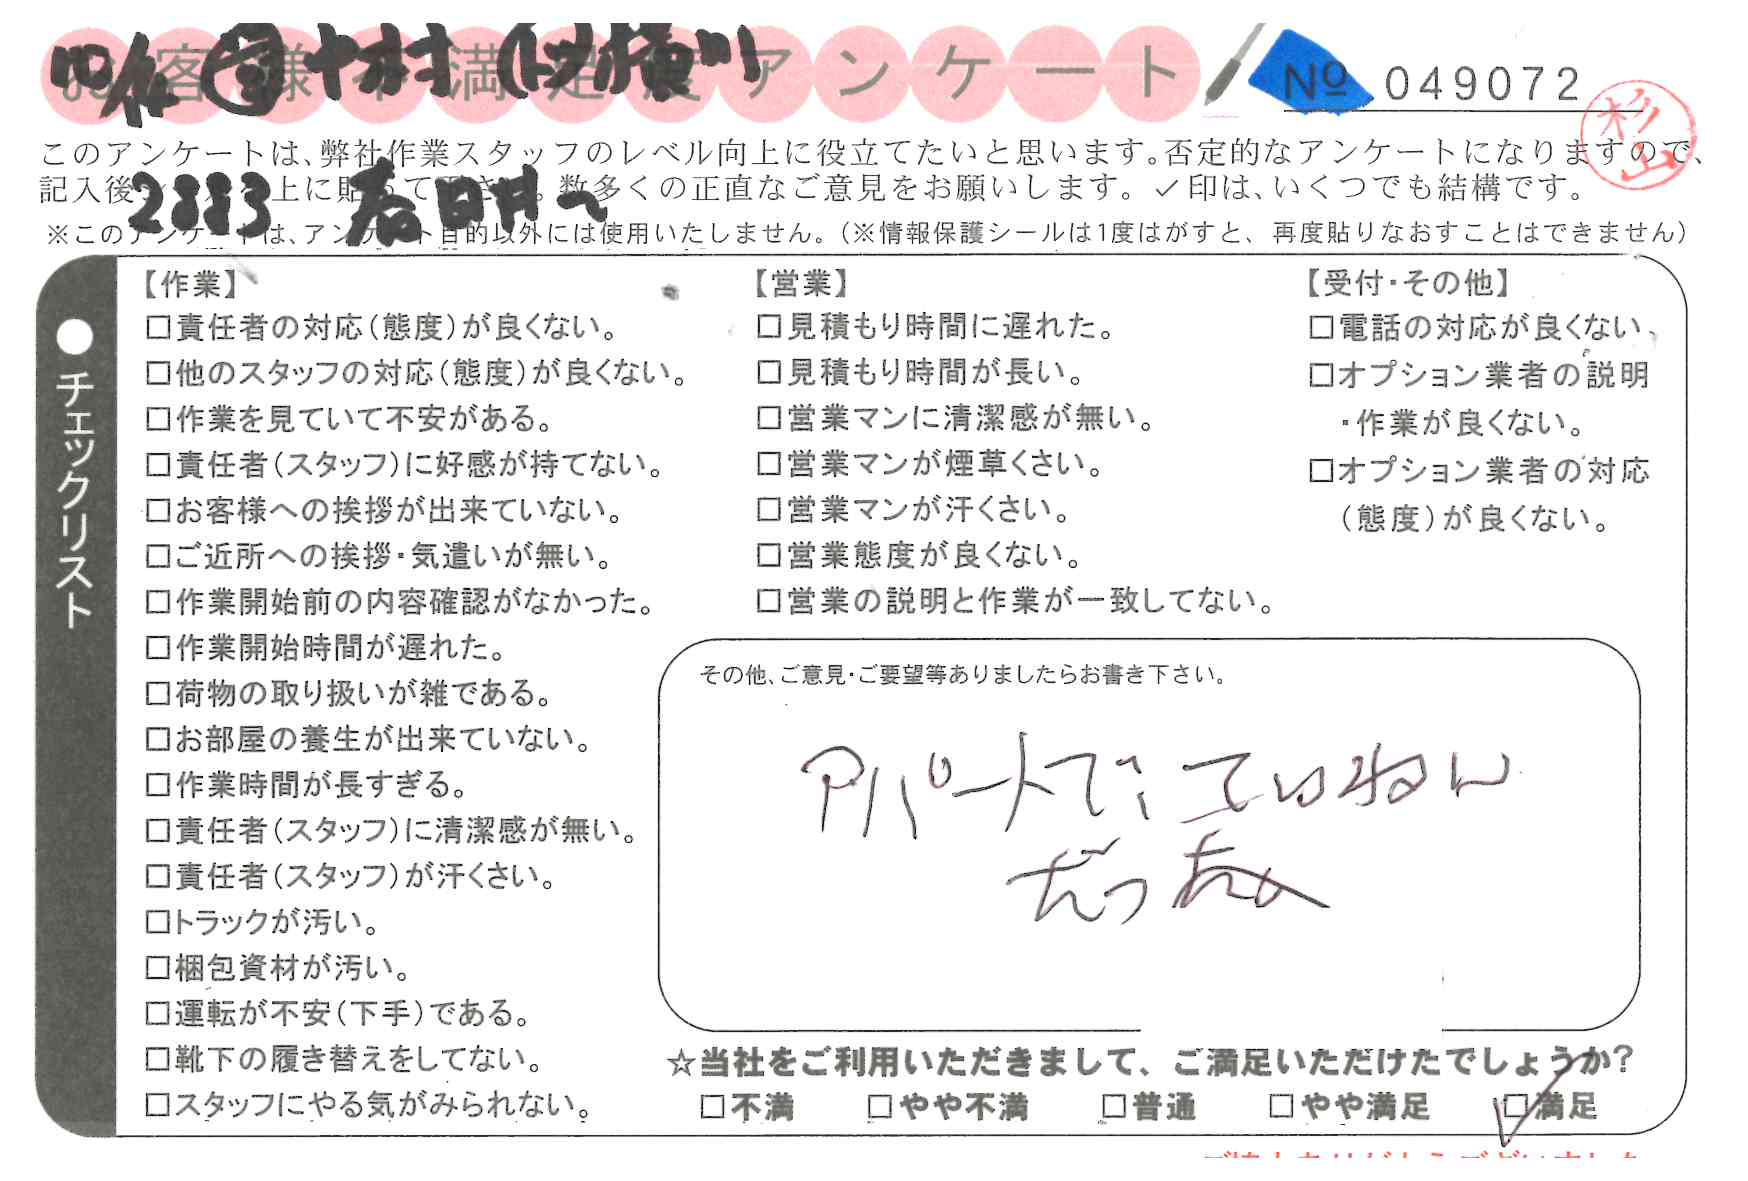 お客様不満足度アンケート
№ 049072
杉山
このアンケートは、弊社作業スタッフのレベル向上に役立てたいと思います。否定的なアンケートになりますので、
記入後 上に貼って下さい。数多くの正直なご意見をお願いします。✓印は、いくつでも結構です。
2883 春日井へ
※このアンケートは、アンケート目的以外には使用いたしません。(※情報保護シールは1度はがすと、再度貼りなおすことはできません)
●チェックリスト
【作業】
□責任者の対応(態度)が良くない。
□他のスタッフの対応(態度)が良くない。
□作業を見ていて不安がある。
□責任者(スタッフ)に好感が持てない。
□お客様への挨拶が出来ていない。
□ご近所への挨拶・気遣いが無い。
□作業開始前の内容確認がなかった。
□作業開始時間が遅れた。
□荷物の取り扱いが雑である。
□お部屋の養生が出来ていない。
□作業時間が長すぎる。
□責任者(スタッフ)に清潔感が無い。
□責任者(スタッフ)が汗くさい。
□トラックが汚い。
□梱包資材が汚い。
□運転が不安(下手)である。
□靴下の履き替えをしてない。
□スタッフにやる気がみられない。
【営業】
□見積もり時間に遅れた。
□見積もり時間が長い。
□営業マンに清潔感が無い。
□営業マンが煙草くさい。
□営業マンが汗くさい。
□営業態度が良くない。
□営業の説明と作業が一致してない。
【受付・その他】
□電話の対応が良くない、
□オプション業者の説明
・作業が良くない。
□オプション業者の対応
(態度)が良くない。
その他、ご意見・ご要望等ありましたらお書き下さい。
アパートで、ていねい
だった
☆当社をご利用いただきまして、ご満足いただけたでしょうか?
□不満 □やや不満 □普通 □やや満足 ☑満足